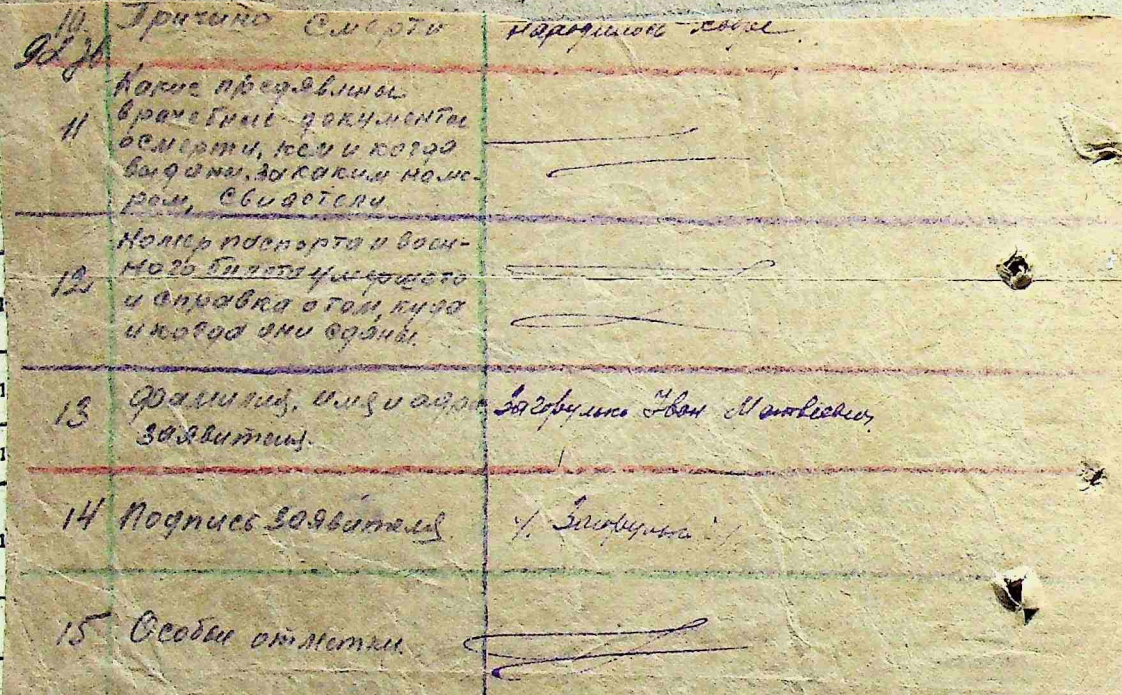 10. Причина Смерти народилось
11 Какие предявлины
врачебные документы
осмерти, кем и когда
выданы. за каким номе-
ром, Свидетели
12 Номер паспорта и воен-
ного билета умершого
и справка о том, куда
и когда они сданы.
13 фамилия, имя и адрес Загорулько Іван Матвієвич
заявителя.
14 Подпись заявителя /. Загорулько /
15 Особые отметки.